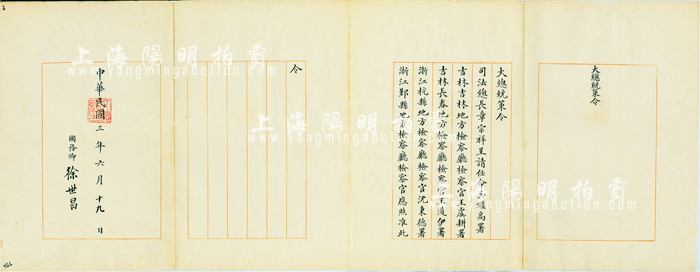 大總統策令
大總統策令
司法總長章宗祥呈請任命吳耀高署
吉林吉林地方檢察廳檢察官王虞耕署
吉林長春地方檢察廳檢察官王道伊署
浙江杭縣地方檢察廳檢察官沈秉德署
浙江鄞縣地方檢察廳檢察官應照准此
令
中華民國三年六月十九日
國務卿 徐世昌
上海陽明拍賣
www.yangmingauction.com
上海陽明拍賣
www.yangmingauction.com
上海陽明拍賣
www.yangmingauction.com